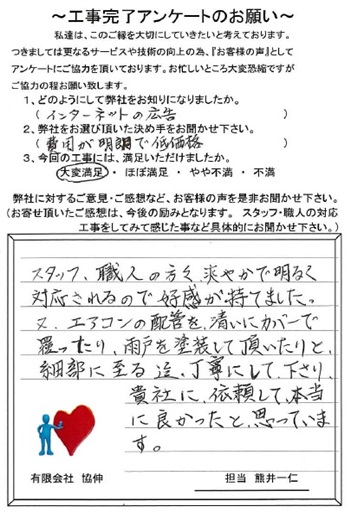 ～工事完了アンケートのお願い～
私達は、このご縁を大切にしていきたいと考えております。
つきましては更なるサービスや技術の向上の為、『お客様の声』として
アンケートにご協力を頂いております。お忙しいところ大変恐縮ですが
ご協力の程お願い致します。
1、どのようにして弊社をお知りになりましたか。
（ インターネットの広告 ）
2、弊社をお選び頂いた決め手をお聞かせ下さい。
（ 費用が明朗で低価格 ）
3、今回の工事には、満足いただけましたか。
大変満足 ・ ほぼ満足 ・ やや不満 ・ 不満
弊社に対するご意見・ご感想など、お客様の声を是非お聞かせ下さい。
（お寄せ頂いたご感想は、今後の励みとなります。 スタッフ・職人の対応
工事をしてみて感じた事など具体的にお聞かせ下さい。）
スタッフ、職人の方々、爽やかで明るく
対応されるので好感が持てました。
又、エアコンの配管を、清いにカバーで
覆ったり、雨戸を塗装して頂いたりと、
細部に至る迄、丁寧にして下さり、
貴社に、依頼して、本当
に良かったと、思っていま
す。
有限会社 協伸
担当 熊井一仁